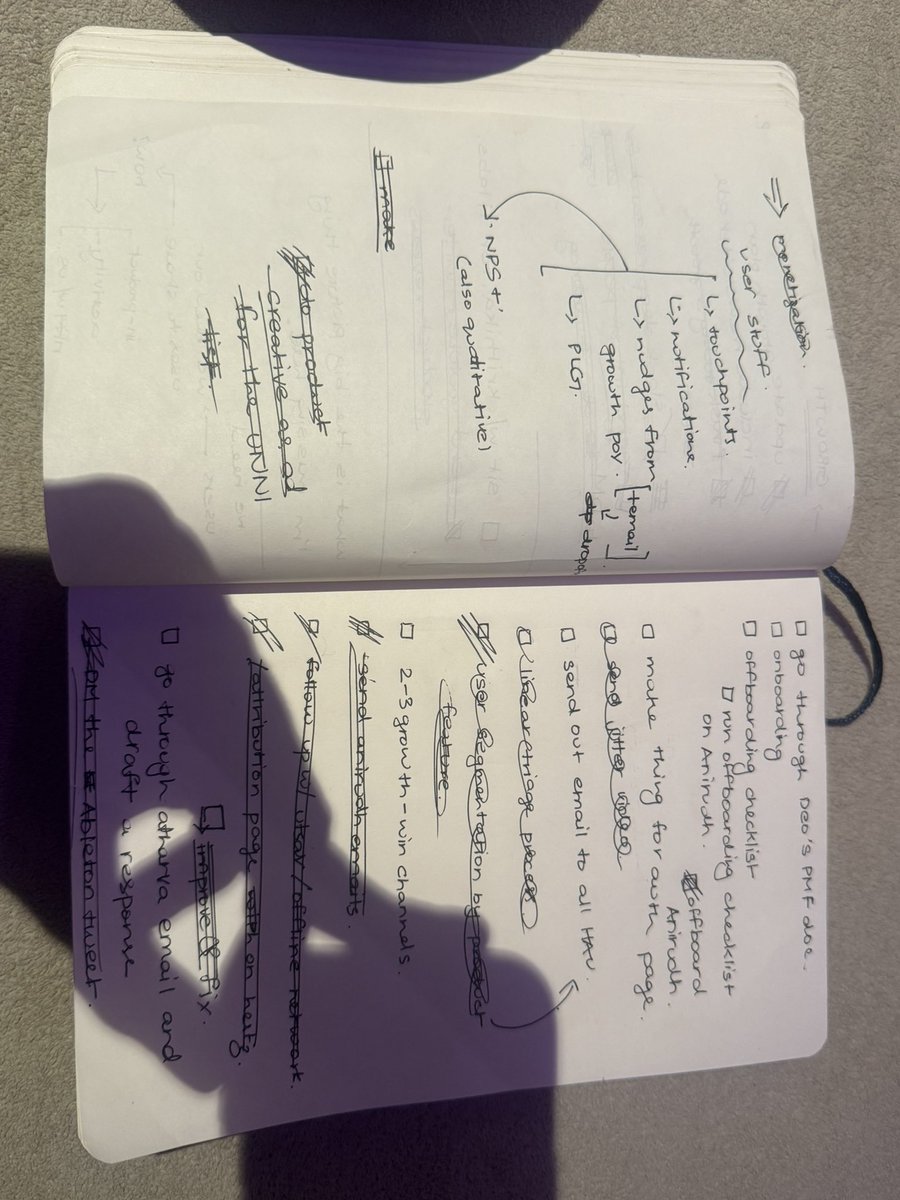 ⇒ monetization.
user stuff.
↳ touchpoints.
↳ notifications.
↳ nudges from
growth pov. [email].
↳ dropoh
↳ PLG.
NPS +
(also qualitative)
□ make
do product
creative as ad
for the UNNI
list.
□ go through Deo's PMF doc.
□ onboarding
□ offboarding checklist
□ run offboarding checklist
on Anirudh.
offboard
Anirudh.
□ make thing for auth page.
send jitter video
□ send out email to all HAU.
linear triage process
user segmentation by product
feature.
□ 2-3 growth-win channels.
send anirudh emails.
follow up w/ utsav/offline network.
attribution page with on hertz.
improve & fix.
□ go through atharva email and
draft a response
DM the Ableton tweet.